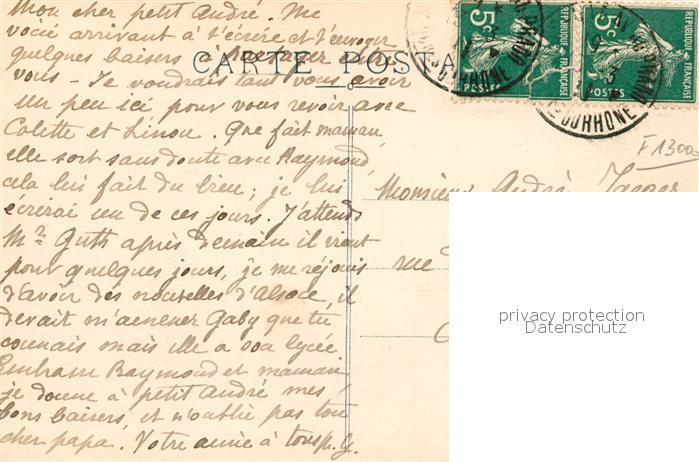 Mon cher petit André. Me
voici arrivant à t'écrire et t'envoyer
quelques baisers à partager entre
vous - Je voudrais tant vous avoir
un peu ici pour vous revoir avec
Colette et Linou. Que fait maman,
elle sort sans doute avec Raymond,
cela lui fait du bien; je lui
écrirai un de ces jours. J'attends
Mr Guth après demain il vient
pour quelques jours, je me réjouis
d'avoir des nouvelles d'Alsace, il
devait m'amener Gaby que tu
connais mais elle a son lycée
Embrasse Raymond et maman
je donne à petit André mes
bons baisers, et n'oublie pas ton
cher papa. Votre amie à tous
CARTE POSTA
5c
POSTES
REPUBLIQUE FRANÇAISE
5c
POSTES
REPUBLIQUE FRANÇAISE
DU RHONE
DU RHONE
F 13000
Monsieur André
rue
privacy protection
Datenschutz